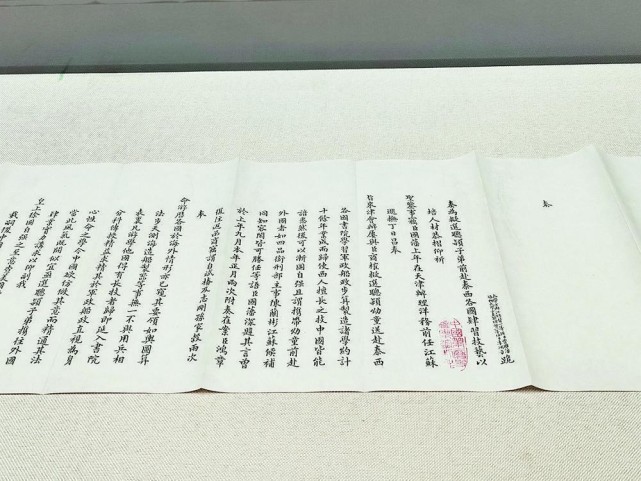 奏
奏為擬選聰穎子弟前赴泰西各國肄習技藝以
培人材恭摺仰祈
聖鑒事竊臣國藩上年在天津辦理洋務前任江蘇
巡撫丁日昌奉
旨來津會辦屢與臣商榷擬選聰穎幼童送赴泰西
各國書院學習軍政船政步算製造諸學約計
十餘年業成而歸使西人擅長之技中國皆能
諳悉然後可以漸圖自強且謂攜帶幼童前赴
外國者如四品銜刑部主事陳蘭彬江蘇候補
同知容閎皆可勝任等語臣國藩深韙其言曾
於上年九月本年正月兩次附奏在案臣鴻章
復往返函商竊謂自斌椿及志剛孫家穀兩次
奉
命游歷各國於海外情形亦已窺其要領如輿圖算
法步天測海造船製器等事無一不與用兵相
表裏凡游學他國得有長技者歸即延入書院
分科傳授精益求精其於軍政船政直視為身
心性命之學今中國欲仿傚其意而精通其法
當此風氣既開似宜亟選聰穎子弟攜往外國
肄業實力講求以仰副我
皇上徐圖自強之至意查美國